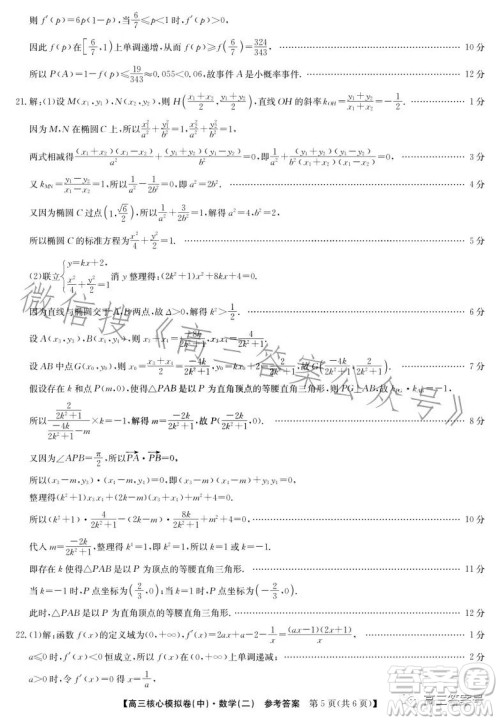 则 f′(p)=6p(1-p), 当 6/7≤p<1 时, f′(p)>0,
因此 f(p) 在 [6/7,1) 上单调递增, f(p)≥f(6/7)=324/343, 10分
所以 P(A)=1-f(p)≤19/343≈0.055<0.06, 故事件 A 是小概率事件. 12分
21.解:(1)设 M(x₁,y₁), N(x₂,y₂), 则 H((x₁+x₂)/2,(y₁+y₂)/2), 直线 OH 的斜率 k_OH=(y₁+y₂)/(x₁+x₂)=-1/2. 1分
因为 M,N 在椭圆 C 上, 所以 x₁²/a²+y₁²/b²=1, x₂²/a²+y₂²/b²=1, 2分
两式相减得 (x₁+x₂)(x₁-x₂)/a²+(y₁+y₂)(y₁-y₂)/b²=0, 即 1/a²+(y₁+y₂)(y₁-y₂)/b²(x₁+x₂)(x₁-x₂)=0. 3分
又 k_MN=(y₁-y₂)/(x₁-x₂)=1, 所以 1/a²-1/2b²=0, 即 a²=2b². 4分
又因为椭圆 C 过点 (1,√6/2), 所以 1/a²+3/2b²=1, 解得 a²=4, b²=2.
所以椭圆 C 的标准方程为 x²/4+y²/2=1. 5分
(2)联立 y=kx+2, x²/4+y²/2=1, 消 y 整理得: (2k²+1)x²+8kx+4=0.
因为直线与椭圆交于 A,B 两点, 故 Δ>0, 解得 k²>1/2. 6分
设 A(x₁,y₁), B(x₂,y₂), 则 x₁+x₂=-8k/(2k²+1), x₁x₂=4/(2k²+1).
设 AB 中点 G(x₀,y₀), 则 x₀=(x₁+x₂)/2=-4k/(2k²+1), y₀=kx₀+2=2/(2k²+1), 故 G(-4k/(2k²+1),2/(2k²+1)). 7分
假设存在 k 和点 P(m,0), 使得△PAB 是以 P 为直角顶点的等腰直角三角形, 则 PG⊥AB, 故
所以 (2/(2k²+1))/(-4k/(2k²+1)-m)×k=-1, 解得 m=-2k/(2k²+1), 故 P(-2k/(2k²+1),0). 8分
又因为∠APB=π/2, 所以 PA·PB=0.
所以(x₁-m,y₁)·(x₂-m,y₂)=0, 即(x₁-m)(x₂-m)+y₁y₂=0.
整理得 (k²+1)x₁x₂+(2k-m)(x₁+x₂)+m²+4=0.
所以(k²+1)·4/(2k²+1)-(2k-m)·8k/(2k²+1)+m²+4=0. 10分
代入 m=-2k/(2k²+1), 11分
即存在 k 使得△PAB 是以 P 为直角顶点的等腰直角三角形.
12分
22.(1)解:函数 f(x) 的定义域为(0,+∞), f′(x)=2ax+a-2-1/x=(ax-1)(2x+1)/x. 1分
a≤0 时, f′(x)<0 恒成立, 所以 f(x) 在(0,+∞)上单调递减;
【高三核心模拟卷(中)·数学(二) 参考答案 第5页(共6页)】
微信搜《高三答案公众号》